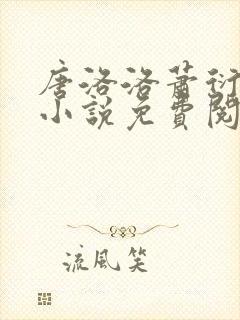 唐洛洛萧衍
小说免费阅
流风笑